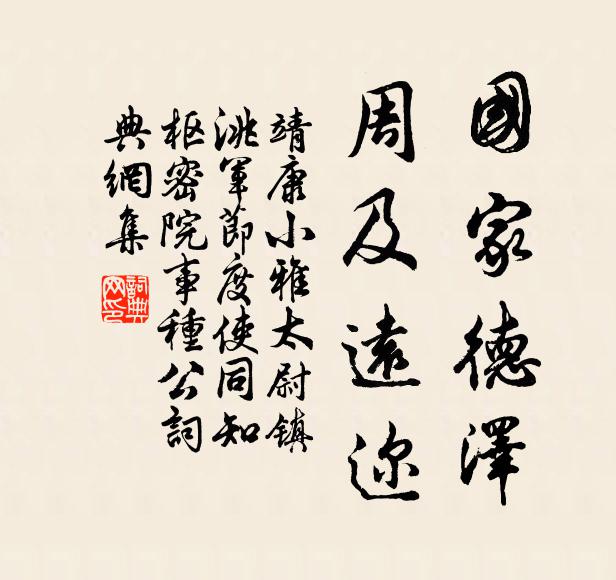 國家德澤
周及遠迩
靖康小雅太尉鎮
洮軍節度使同知
枢密院事種公詞
典網集
詞典
网印